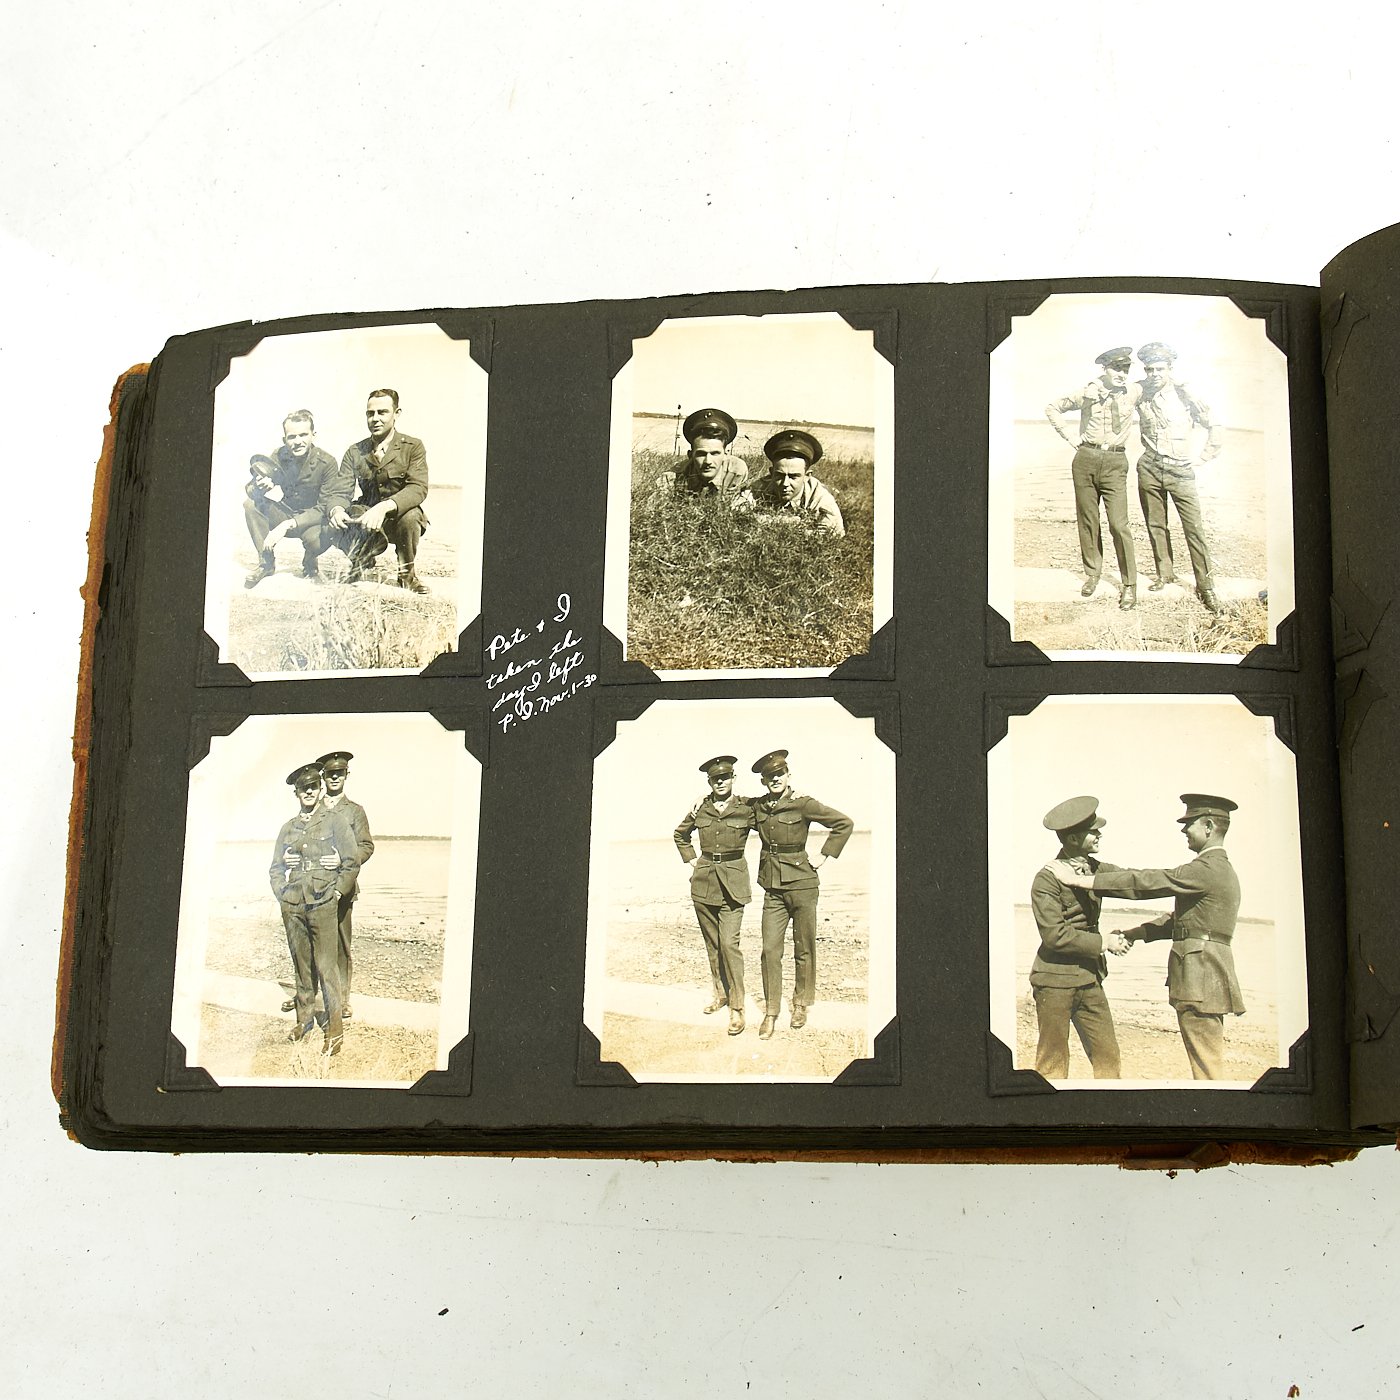 Pete & I
taken the
day I left
P.I. Nov. 1-30